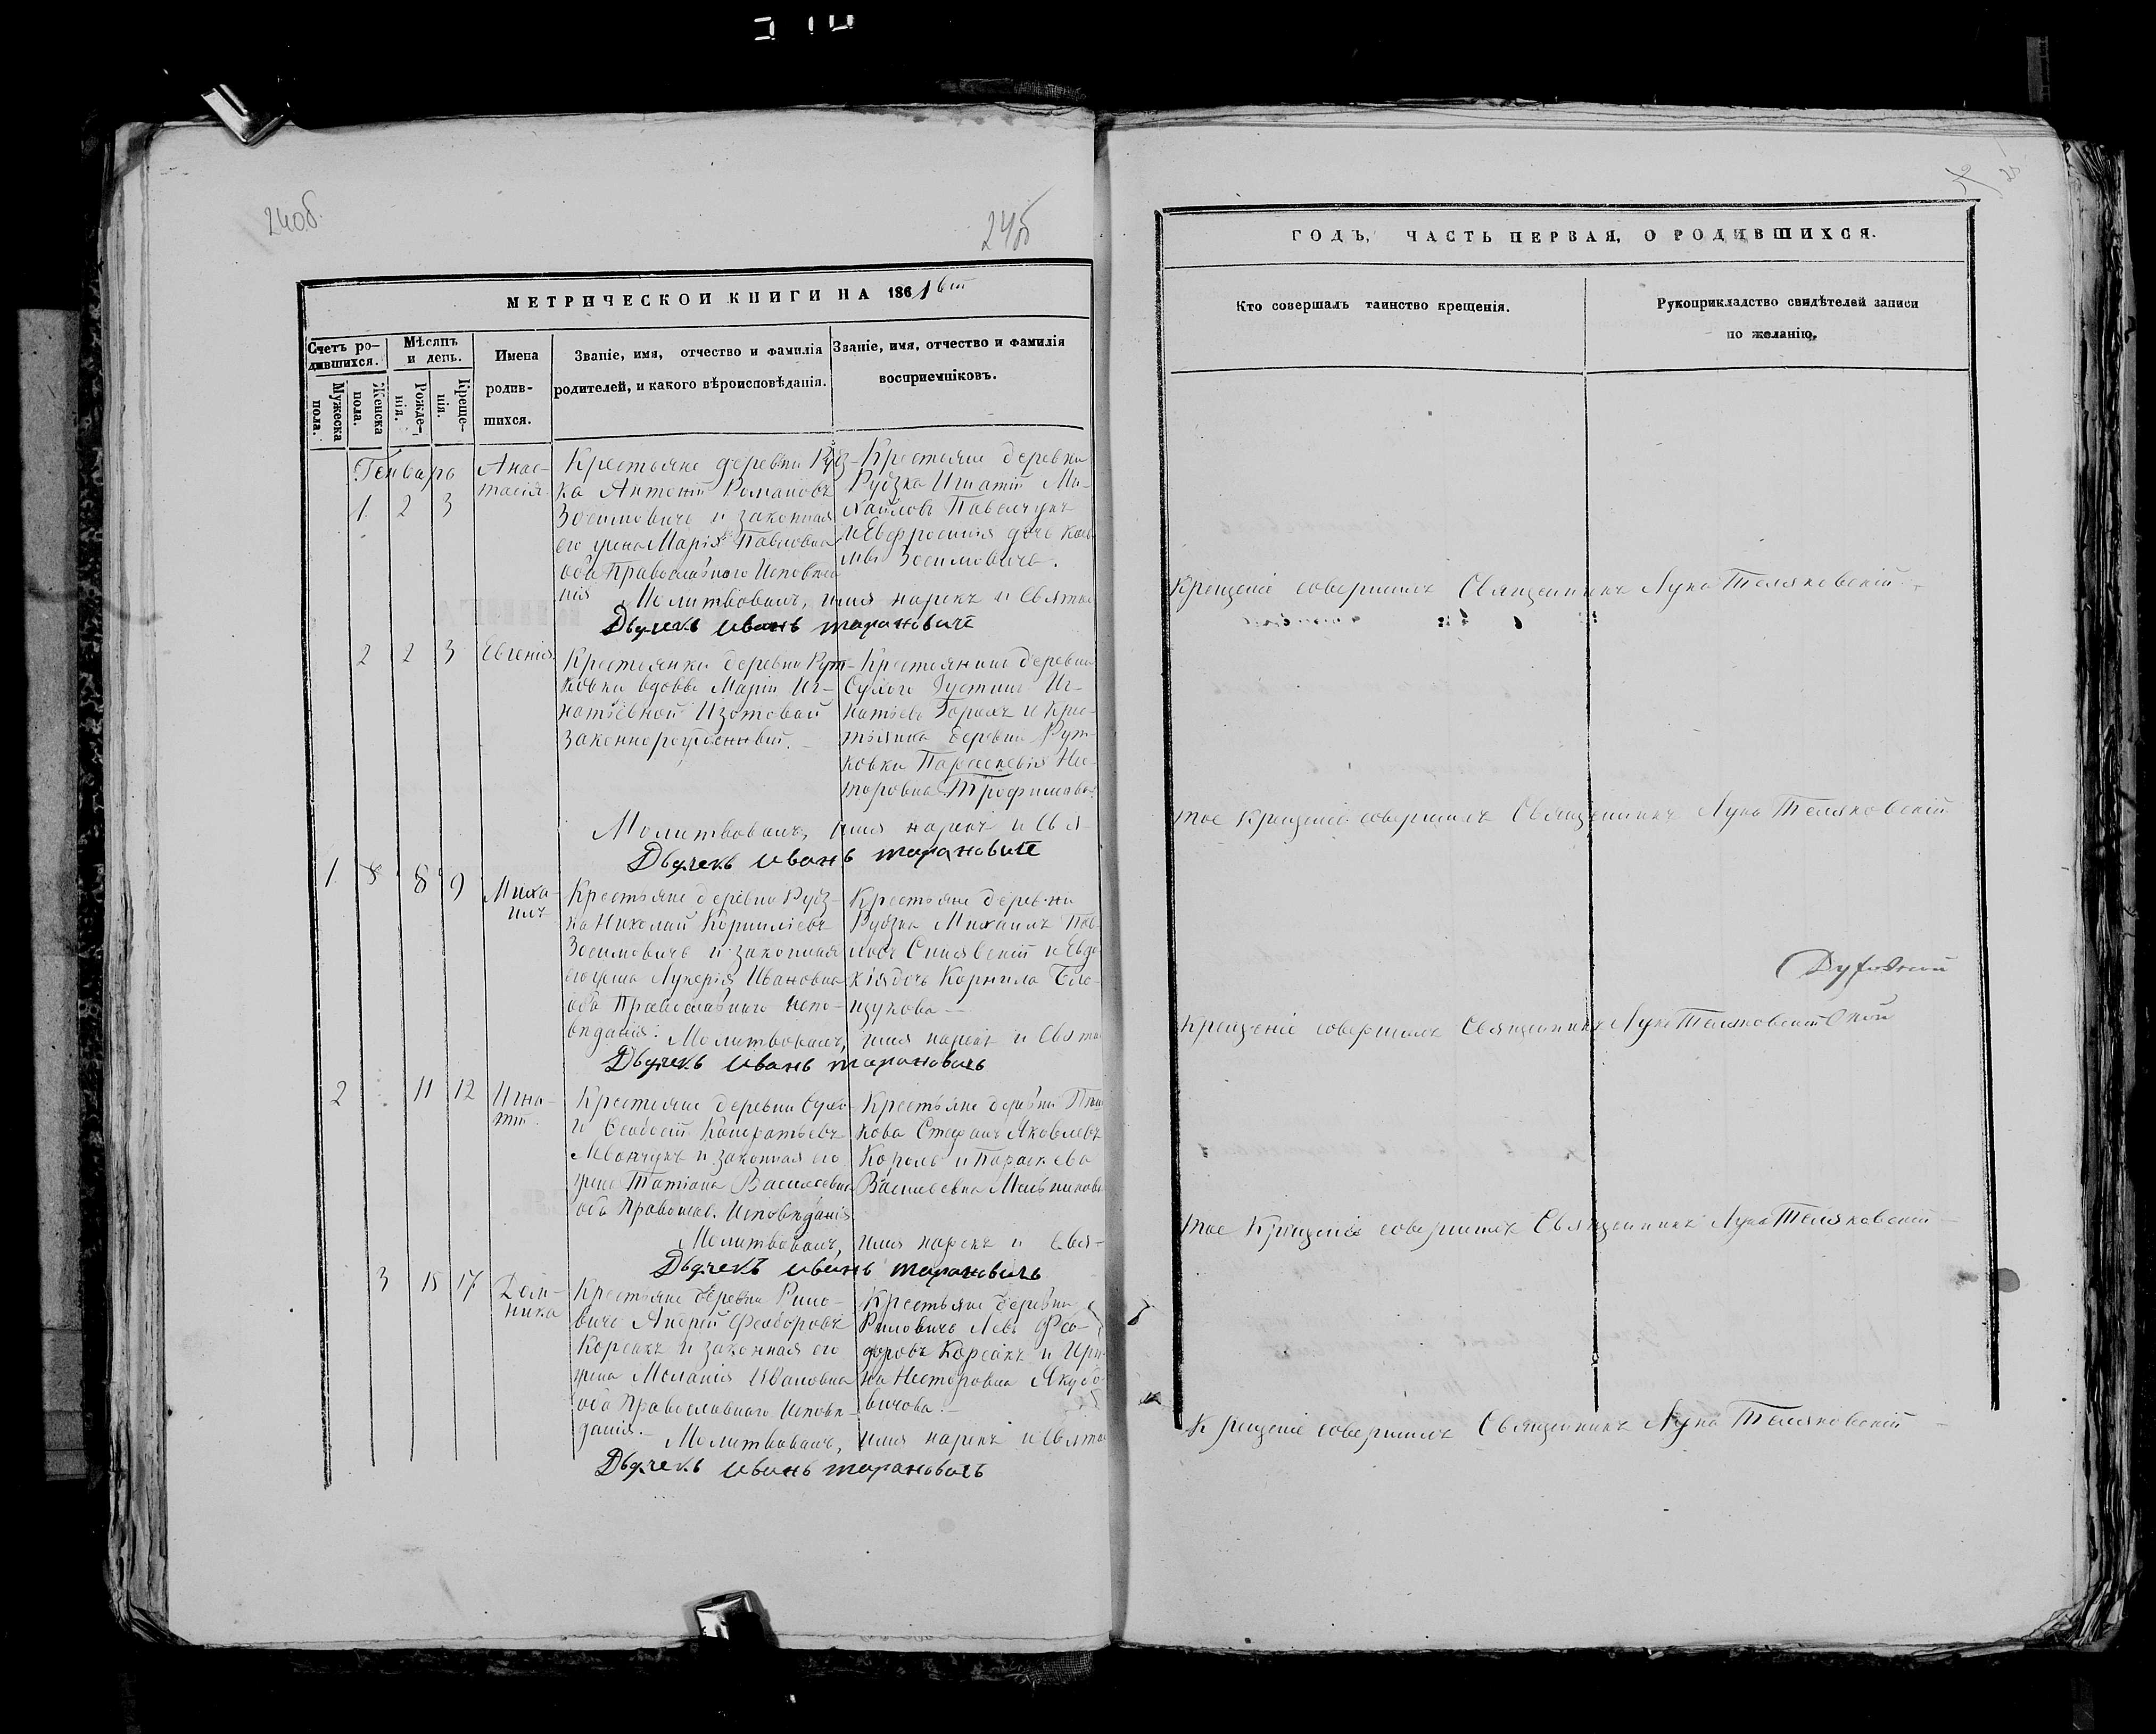 240б.
24об
МЕТРИЧЕСКОЙ КНИГИ НА 1861
Счетъ ро-
дившихся.
Мѣсяцъ
и день.
Мужеска
пола.
Женска
пола.
Рожде-
нія.
Креще-
нія.
Имена
родив-
шихся.
Званіе, имя, отчество и фамилія
родителей, и какого вѣроисповѣданія.
Званіе, имя, отчество и фамилія
восприемніковъ.
Генварь
1 2 3
Анас-
тасія
Крестьяне деревни Рудз-
ка Антоній Романовъ
Зосимовичъ и законная
его жена Марія Павловна
оба Православнаго Исповѣда
нія
Крестьяне деревни
Рудзка Игнатій Ми-
хайловъ Павлчукъ
и Евфросинія дочь
Зосимовича.
Молитвовалъ, имя нарекъ и Святое
Дьячекъ иванъ таранов
2 2 3
Евгенія
Крестьянки деревни Рут-
ковки вдовы Маріи Иг-
натіевной Изотовай
законнорожденный.
Крестьянинъ деревни
Сухого Іустинъ Иг-
натьевъ Горалъ и Крес-
тьянка деревни Рут-
ковки Параскевія Нес-
торовна Трофимова.
Молитвовалъ, имя нарекъ и Свя-
Дьячекъ иванъ таранов
1 8 8 9
Миха-
илъ
Крестьяне деревни Рудз-
ка Николай Корниліевъ
Зосимовичъ и законная
его жена Лукерія Ивановна
оба Православнаго Испо-
вѣданія.
Крестьяне деревни
Рудзка Михаилъ Пав-
ловъ Синявскій и Евдо-
кія дочь Корнила
Молитвовалъ, имя нарекъ и Свято
Дьячекъ иванъ тарановичъ
2 11 12
Игна-
тій.
Крестьяне деревни Сухо-
го Кондратьевъ
Левончукъ и законная его
жена Татіана Васильевна
оба Православ. Исповѣданія
Крестьяне деревни
Стефанъ Яковлевъ
Король и Параскева
Васильевна Мельникова
Молитвовалъ, имя нарекъ и Свя-
Дьячекъ иванъ тарановичъ
3 15 17
Дом-
ника
Крестьяне деревни Рило-
вичъ Андрей Феодоровъ
Корсакъ и законная его
жена Меланія Ивановна
оба Православнаго Исповѣ-
данія.
Крестьяне деревни
Риловичъ Левъ Фео-
доровъ Корсакъ и Ири-
на Несторовна Якубо-
вичова.
Молитвовалъ, имя нарекъ и Святое
Дьячекъ иванъ тарановичъ
ГОДЪ, ЧАСТЬ ПЕРВАЯ, О РОДИВШИХСЯ.
Кто совершалъ таинство крещенія.
Рукоприкладство свидѣтелей записи
по желанію.
Крещеніе совершилъ Священникъ Лука Теляковскій
тое Крещеніе совершилъ Священникъ Лука Теляковскій
Крещеніе совершилъ Священникъ Лука Теляковскій
тое Крещеніе совершилъ Священникъ Лука Теляковскій
Крещеніе совершилъ Священникъ Лука Теляковскій